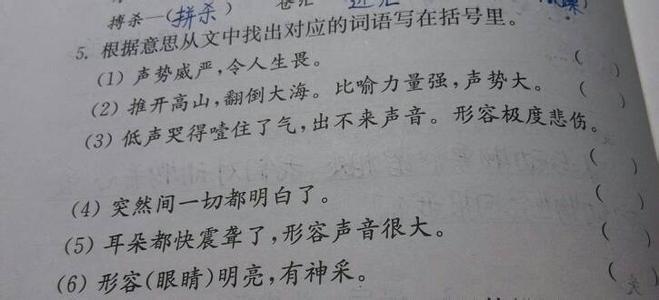 搏杀—(拼杀)
5. 根据意思从文中找出对应的词语写在括号里。
(1) 声势威严,令人生畏。 ( )
(2) 推开高山,翻倒大海。比喻力量强,声势大。 ( )
(3) 低声哭得噎住了气,出不来声音。形容极度悲伤。
( )
(4) 突然间一切都明白了。 ( )
(5) 耳朵都快震聋了,形容声音很大。 ( )
(6) 形容(眼睛)明亮,有神采。 ( )